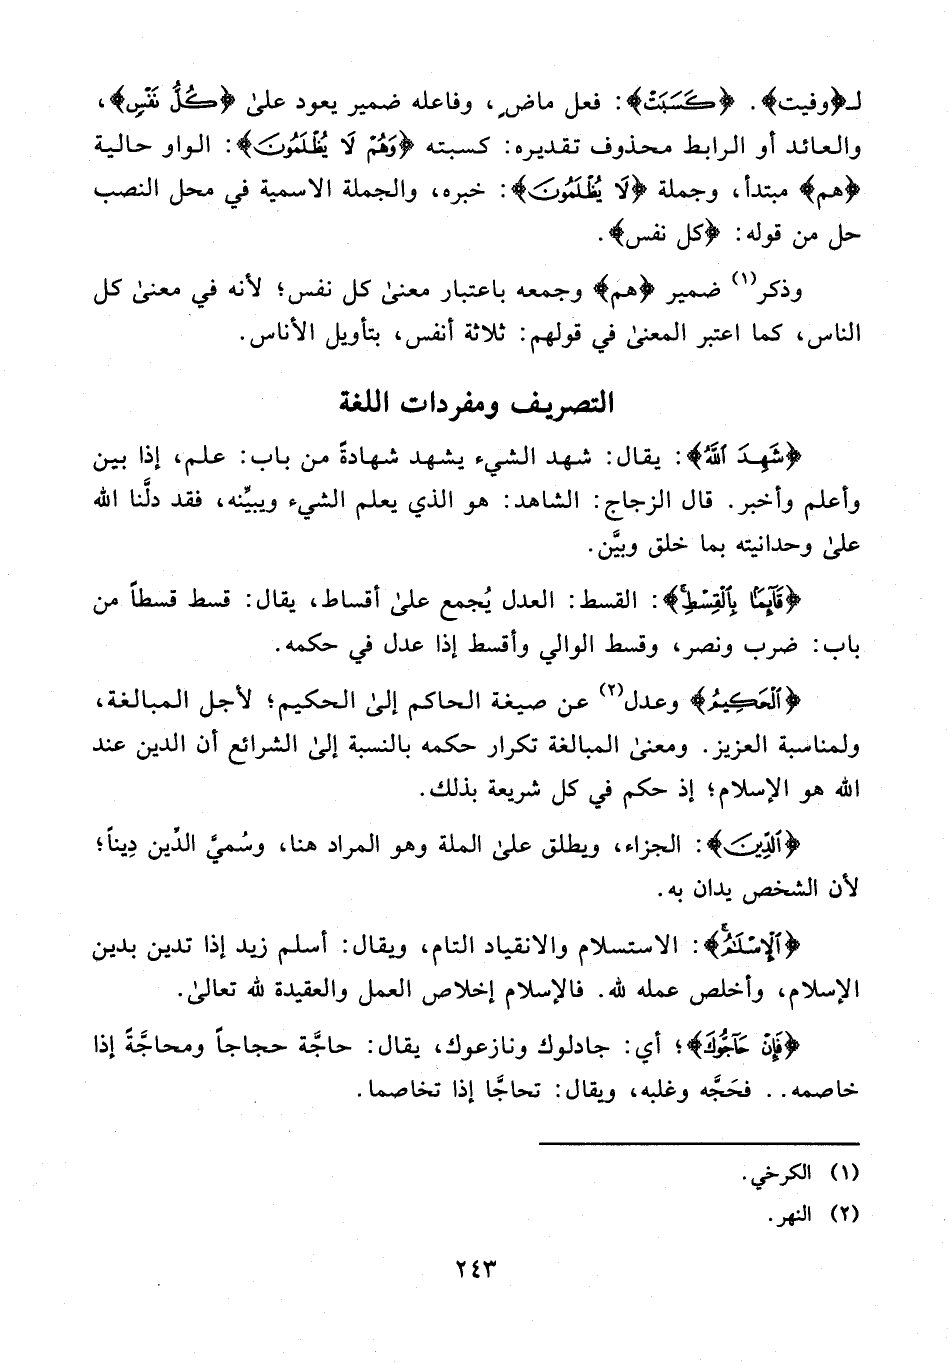 لـ﴿وفيت﴾. ﴿كَسَبَتْ﴾: فعل ماضٍ، وفاعله ضمير يعود علىٰ ﴿كُلُّ نَفْسٍ﴾،
والعائد أو الرابط محذوف تقديره: كسبته ﴿وَهُمْ لَا يُظْلَمُونَ﴾: الواو حالية
﴿هم﴾ مبتدأ، وجملة ﴿لَا يُظْلَمُونَ﴾: خبره، والجملة الاسمية في محل النصب
حل من قوله: ﴿كل نفس﴾.
وذكر(١) ضمير ﴿هم﴾ وجمعه باعتبار معنىٰ كل نفس؛ لأنه في معنىٰ كل
الناس، كما اعتبر المعنىٰ في قولهم: ثلاثة أنفس، بتأويل الأناس.
التصريف ومفردات اللغة
﴿شَهِدَ ٱللَّهُ﴾: يقال: شهد الشيء يشهد شهادةً من باب: علم، إذا بين
وأعلم وأخبر. قال الزجاج: الشاهد: هو الذي يعلم الشيء ويبيِّنه، فقد دلَّنا الله
علىٰ وحدانيته بما خلق وبيَّن.
﴿قَآئِمًۢا بِٱلْقِسْطِۚ﴾: القسط: العدل يُجمع علىٰ أقساط، يقال: قسط قسطاً من
باب: ضرب ونصر، وقسط الوالي وأقسط إذا عدل في حكمه.
﴿ٱلْحَكِيمُ﴾ وعدل(٢) عن صيغة الحاكم إلىٰ الحكيم؛ لأجل المبالغة،
ولمناسبة العزيز. ومعنىٰ المبالغة تكرار حكمه بالنسبة إلىٰ الشرائع أن الدين عند
الله هو الإسلام؛ إذ حكم في كل شريعة بذلك.
﴿ٱلدِّينَ﴾: الجزاء، ويطلق علىٰ الملة وهو المراد هنا، وسُميَّ الدِّين دِيناً؛
لأن الشخص يدان به.
﴿ٱلْإِسْلَٰمُۗ﴾: الاستسلام والانقياد التام، ويقال: أسلم زيد إذا تدين بدين
الإسلام، وأخلص عمله لله. فالإسلام إخلاص العمل والعقيدة لله تعالىٰ.
﴿فَإِنْ حَآجُّوكَ﴾؛ أي: جادلوك ونازعوك، يقال: حاجَّة حجاجاً ومحاجَّةً إذا
خاصمه.. فحَجَّه وغلبه، ويقال: تحاجَّا إذا تخاصما.
(١) الكرخي.
(٢) النهر.
٢٤٣